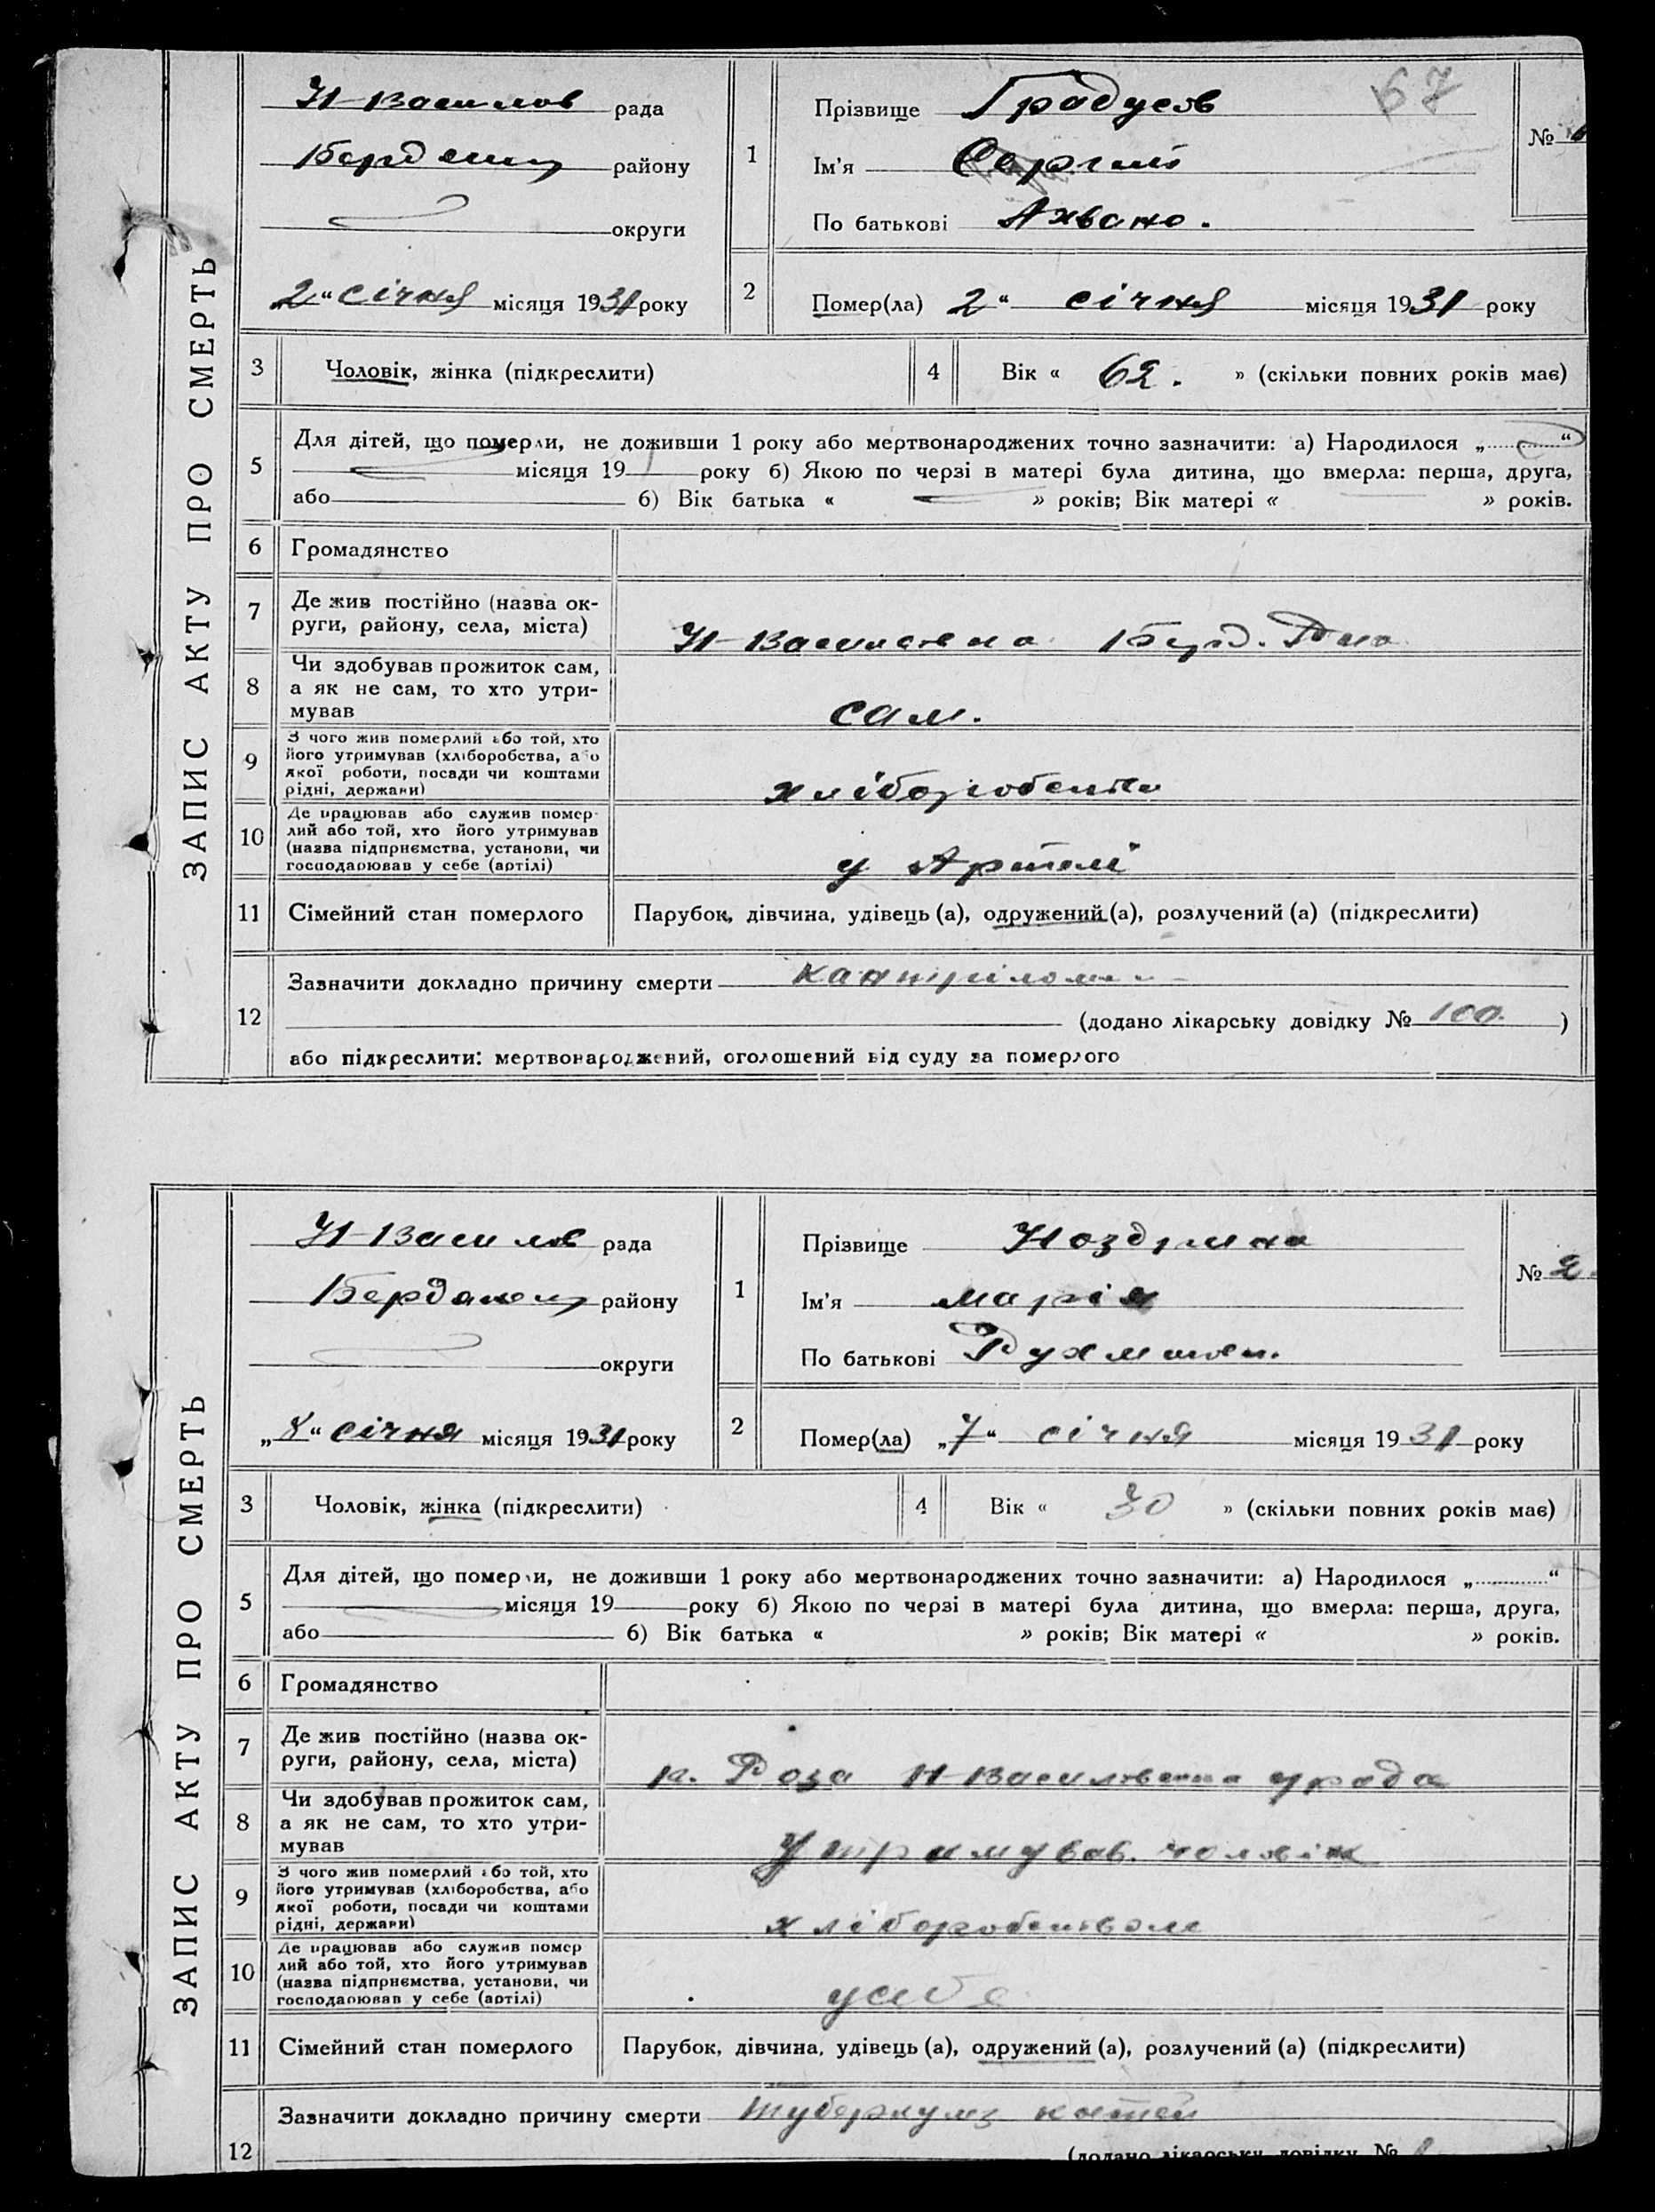 ЗАПИС АКТУ ПРО СМЕРТЬ
67
Н-Василов рада
района району
округи
2 “ січня місяця 1931 року
1
Прізвище Градусов
Ім'я Сергій
По батькові
№
2
Помер(ла) 2 “ січня місяця 1931 року
3 Чоловік, жінка (підкреслити)
4 Вік « 62. » (скільки повних років має)
5 Для дітей, що померли, не доживши 1 року або мертвонароджених точно зазначити: а) Народилося „ “
місяця 19 року б) Якою по черзі в матері була дитина, що вмерла: перша, друга,
або б) Вік батька « » років; Вік матері « » років.
6 Громадянство
7 Де жив постійно (назва ок-
руги, району, села, міста)
Н-Василівка
8 Чи здобував прожиток сам,
а як не сам, то хто утри-
мував
сам.
9 З чого жив померлий або той, хто
його утримував (хліборобства, або
якої роботи, посади чи коштами
рідні, держави)
10 Де працював або служив помер-
лий або той, хто його утримував
(назва підприємства, установи, чи
господарював у себе (артілі)
у Артелі
11 Сімейний стан померлого
Парубок, дівчина, удівець (а), одружений (а), розлучений (а) (підкреслити)
12 Зазначити докладно причину смерти
(додано лікарську довідку № 100. )
або підкреслити: мертвонароджений, оголошений від суду за померлого
ЗАПИС АКТУ ПРО СМЕРТЬ
Н-Василов рада
району
округи
„ 8 “ січня місяця 1931 року
1
Прізвище Ноздрина
Ім'я Марія
По батькові
№ 2.
2
Помер(ла) „ 7 “ січня місяця 1931 року
3 Чоловік, жінка (підкреслити)
4 Вік « 30 » (скільки повних років має)
5 Для дітей, що померли, не доживши 1 року або мертвонароджених точно зазначити: а) Народилося „ “
місяця 19 року б) Якою по черзі в матері була дитина, що вмерла: перша, друга,
або б) Вік батька « » років; Вік матері « » років.
6 Громадянство
7 Де жив постійно (назва ок-
руги, району, села, міста)
к. Роза Н-Василівська
8 Чи здобував прожиток сам,
а як не сам, то хто утри-
мував
Утримував чоловік
9 З чого жив померлий або той, хто
його утримував (хліборобства, або
якої роботи, посади чи коштами
рідні, держави)
хліборобством
10 Де працював або служив помер
лий або той, хто його утримував
(назва підприємства, установи, чи
господарював у себе (артілі)
усебе
11 Сімейний стан померлого
Парубок, дівчина, удівець (а), одружений (а), розлучений (а) (підкреслити)
12 Зазначити докладно причину смерти туберкульз костей
(додано лікарську довідку №